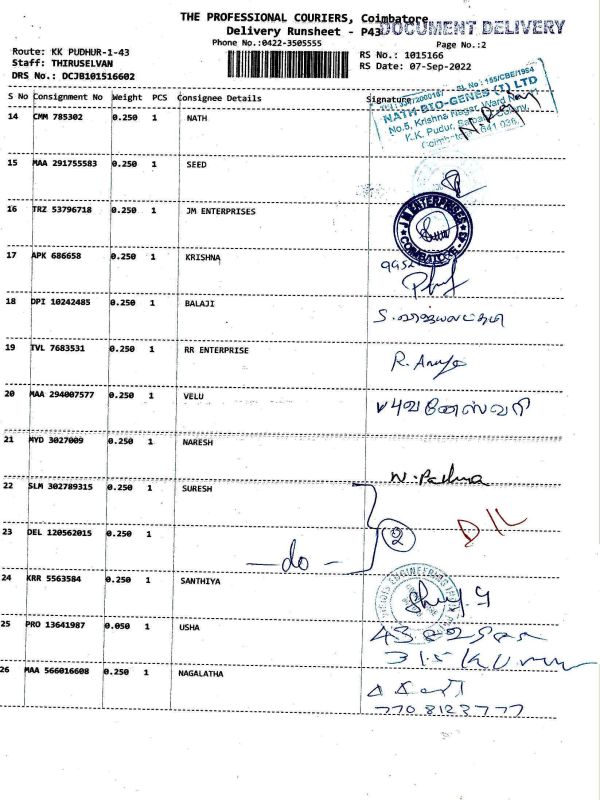 THE PROFESSIONAL COURIERS, Coimbatore
DOCUMENT DELIVERY
Delivery Runsheet - P43
Phone No.:0422-3505555
Page No.:2
Route: KK PUDHUR-1-43
RS No.: 1015166
Staff: THIRUSELVAN
RS Date: 07-Sep-2022
DRS No.: DCJB101516602
S No Consignment No Weight PCS Consignee Details Signature
NATH BIO-GENES (I) LTD
No.5, Krishna Nagar, Ward No
K.K. Pudur, Saibaba Colony,
14 CMM 785302 0.250 1 NATH
15 MAA 291755583 0.250 1 SEED
16 TRZ 53796718 0.250 1 JM ENTERPRISES
J M ENTERPRISES
COIMBATORE
17 APK 686658 0.250 1 KRISHNA
18 DPI 10242485 0.250 1 BALAJI
19 TVL 7683531 0.250 1 RR ENTERPRISE
20 MAA 294007577 0.250 1 VELU
புவனேஸ்வரி
21 MYD 3027009 0.250 1 NARESH
N. Padma
22 SLM 302789315 0.250 1 SURESH
D/L
23 DEL 120562015 0.250 1
2
-do-
24 KRR 5563584 0.250 1 SANTHIYA
25 PRO 13641987 0.050 1 USHA
26 MAA 566016608 0.250 1 NAGALATHA
7708123777